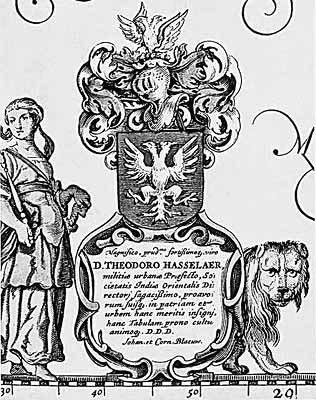 Magnifico, prud.mo fortissimoq, viro
D. THEODORO HASSELAER,
militiæ urbanæ Præfecto, So,
cietatis Indiæ Orientalis Di
rectori sagacissimo, proavo,
rum suisq, in patriam et
urbem hanc meritis insigni,
hanc Tabulam prono cultu
animoq, D.D.D.
Iohan. et Corn. Blaeuw.
M
30 40 50 52 20